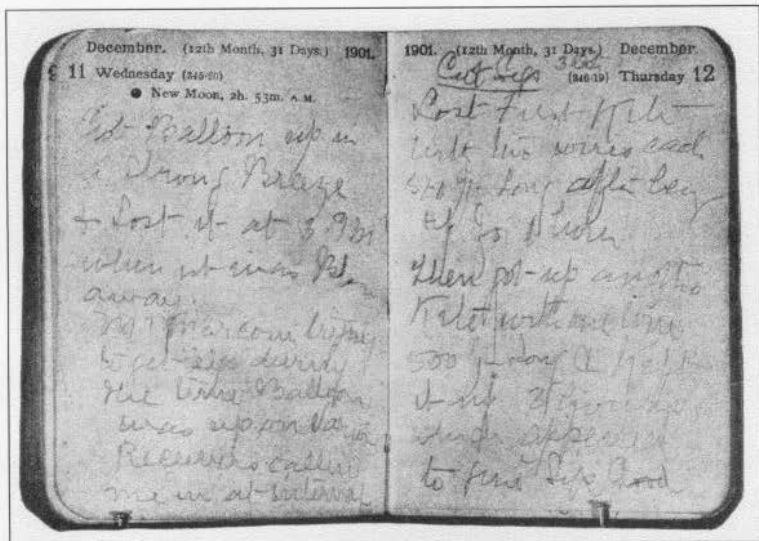 December. (12th Month, 31 Days.) 1901.
11 Wednesday (345-20)
● New Moon, 2h. 53m. A.M.
Got Balloon up in
a Strong Breze
+ Lost it at 3. P.M
when it was Blow
away.
Mr Marconi trying
to get sigs during
the time Balloon
was up on
Receivers calling
me in at interval
1901. (12th Month, 31 Days.) December.
(346-19) Thursday 12
Sigs
Lost First Kite
with two wires each
510 ft Long after being
up
Then got up another
Kite with one wire
500 ft long
it up 3 hours
which appeared
to give Sigs Good